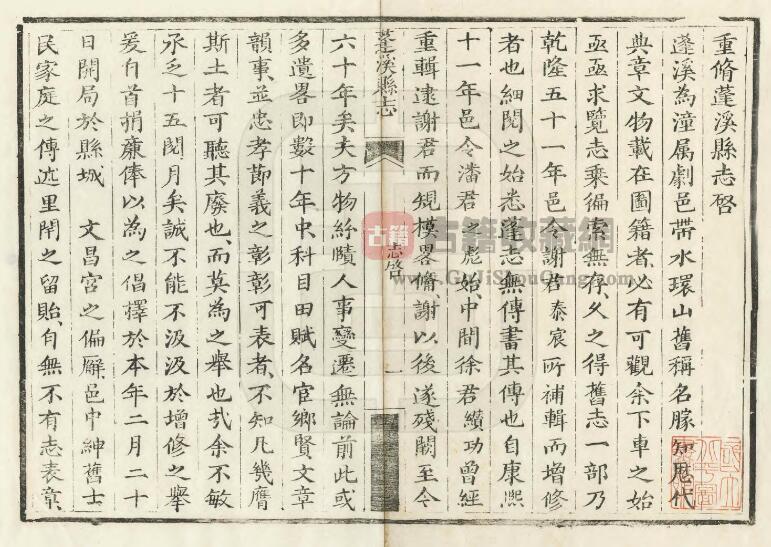 重脩蓬溪縣志啓
蓬溪為潼属劇邑帶水環山舊稱名勝知歷代
典章文物載在圖籍者必有可觀余下車之始
亟亟求覽志乗徧索無存久之得舊志一部乃
乾隆五十一年邑令謝君泰宸所補輯而增修
者也細閱之始悉蓬志無傳書其傳也自康熙
十一年邑令潘君之彪始中間徐君纘功曾經
重輯逮謝君而規模畧脩謝以後遂殘闕至今
蓬溪縣志
志啓
一
六十年矣夫方物紛賾人事變遷無論前此或
多遺畧即數十年中科目田賦名宦鄉賢文章
韻事並忠孝節義之彰彰可表者不知凡幾膺
斯土者可聽其廢也而莫為之舉也哉余不敏
承乏十五閱月矣誠不能不汲汲於增修之舉
爰自首捐亷俸以為之倡擇於本年二月二十
日開局於縣城 文昌宮之偏廨邑中紳舊士
民家庭之傳述里閈之留貽自無不有志表章
古籍
古籍收藏網
www.GuJiShouCang.com